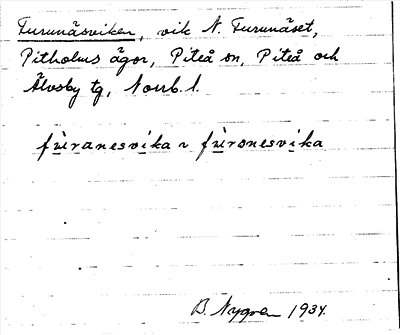 Furunäsviken, vik N. Furunäset,
Pitholms ägor, Piteå sn, Piteå och
Älvsby tg, Norrb. l.
fùranesvika ~ fùrsnesvika
B. Nygren 1934.